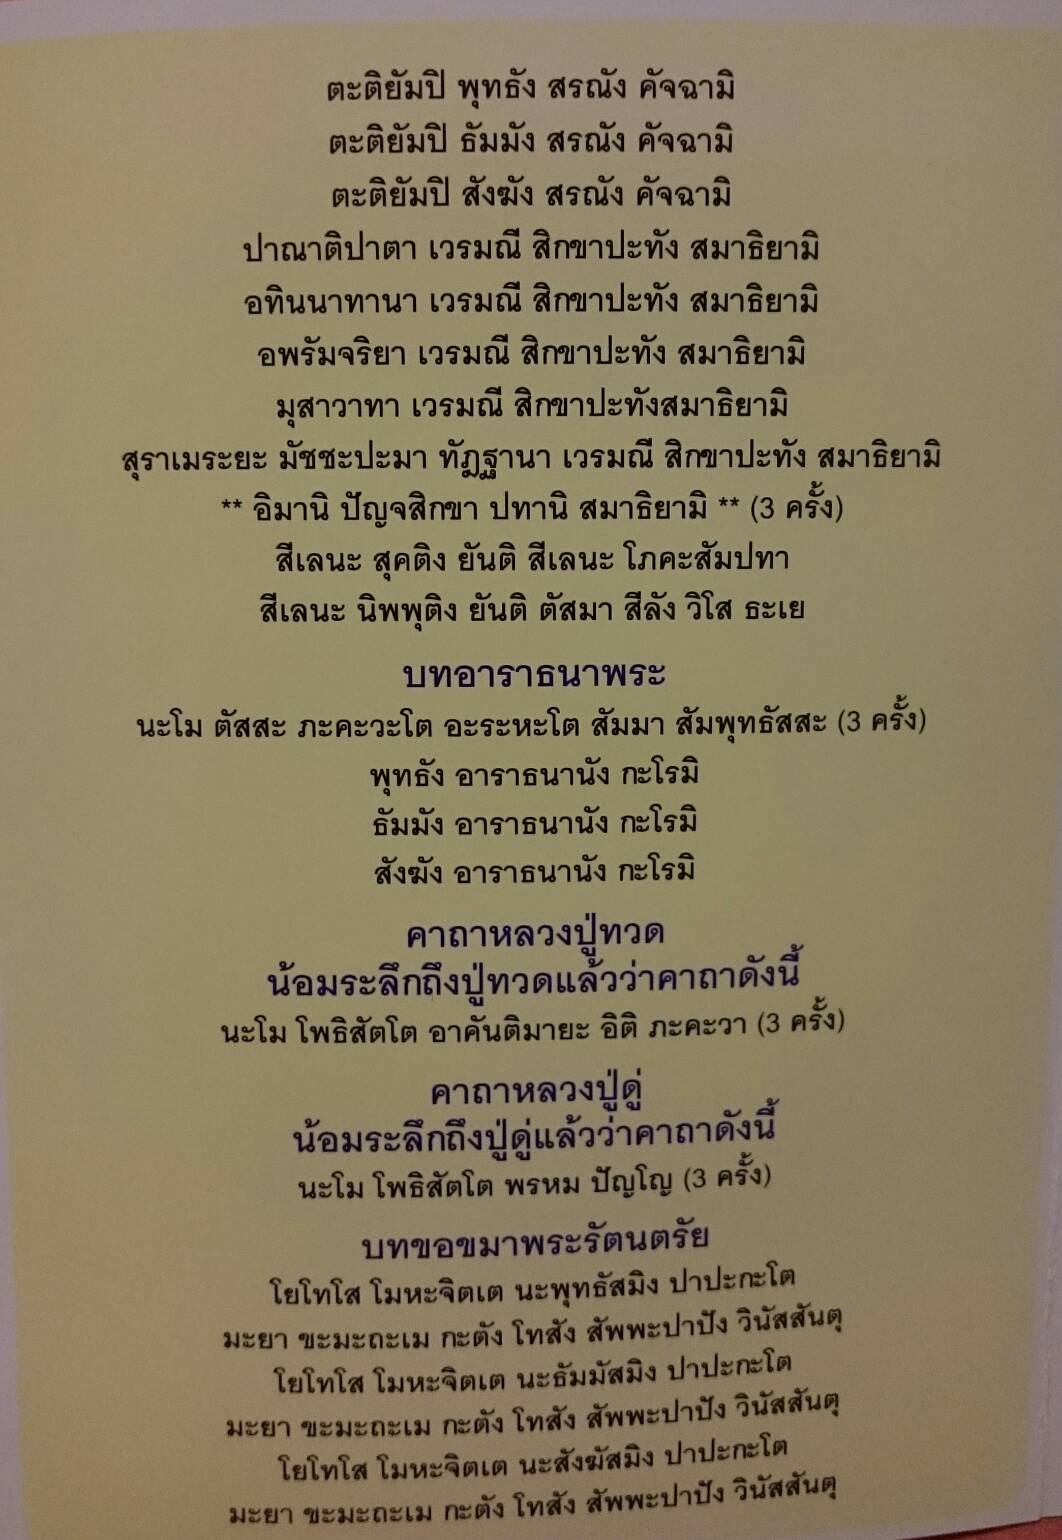 ตะติยัมปิ พุทธัง สรณัง คัจฉามิ
ตะติยัมปิ ธัมมัง สรณัง คัจฉามิ
ตะติยัมปิ สังฆัง สรณัง คัจฉามิ
ปาณาติปาตา เวรมณี สิกขาปะทัง สมาธิยามิ
อทินนาทานา เวรมณี สิกขาปะทัง สมาธิยามิ
อพรัมจริยา เวรมณี สิกขาปะทัง สมาธิยามิ
มุสาวาทา เวรมณี สิกขาปะทังสมาธิยามิ
สุราเมระยะ มัชชะปะมา ทัฏฐานา เวรมณี สิกขาปะทัง สมาธิยามิ
** อิมานิ ปัญจสิกขา ปทานิ สมาธิยามิ ** (3 ครั้ง)
สีเลนะ สุคติง ยันติ สีเลนะ โภคะสัมปทา
สีเลนะ นิพพุติง ยันติ ตัสมา สีลัง วิโส ธะเย
บทอาราธนาพระ
นะโม ตัสสะ ภะคะวะโต อะระหะโต สัมมา สัมพุทธัสสะ (3 ครั้ง)
พุทธัง อาราธนานัง กะโรมิ
ธัมมัง อาราธนานัง กะโรมิ
สังฆัง อาราธนานัง กะโรมิ
คาถาหลวงปู่ทวด
น้อมระลึกถึงปู่ทวดแล้วว่าคาถาดังนี้
นะโม โพธิสัตโต อาคันติมายะ อิติ ภะคะวา (3 ครั้ง)
คาถาหลวงปู่ดู่
น้อมระลึกถึงปู่ดู่แล้วว่าคาถาดังนี้
นะโม โพธิสัตโต พรหม ปัญโญ (3 ครั้ง)
บทขอขมาพระรัตนตรัย
โยโทโส โมหะจิตเต นะพุทธัสมิง ปาปะกะโต
มะยา ขะมะถะเม กะตัง โทสัง สัพพะปาปัง วินัสสันตุ
โยโทโส โมหะจิตเต นะธัมมัสมิง ปาปะกะโต
มะยา ขะมะถะเม กะตัง โทสัง สัพพะปาปัง วินัสสันตุ
โยโทโส โมหะจิตเต นะสังฆัสมิง ปาปะกะโต
มะยา ขะมะถะเม กะตัง โทสัง สัพพะปาปัง วินัสสันตุ